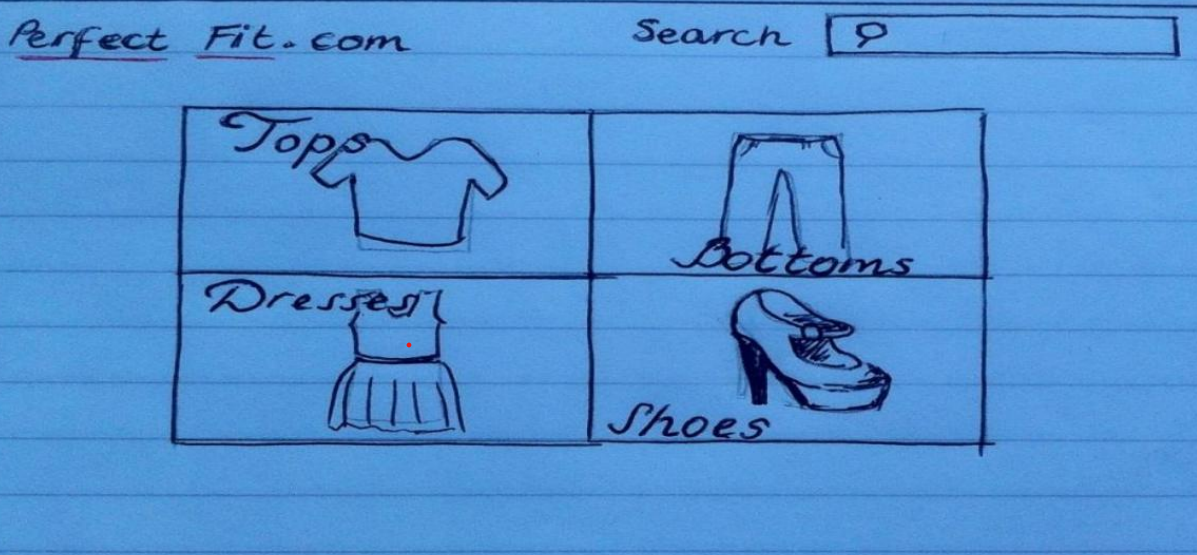 Perfect Fit.com
Search
Tops
Bottoms
Dresses
Shoes